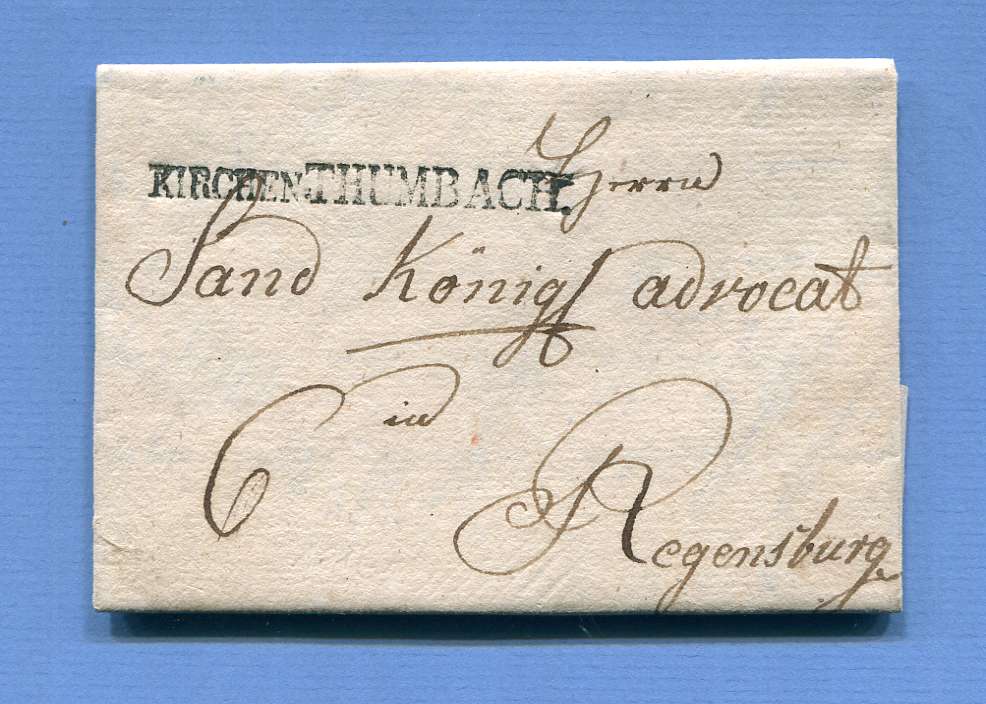 KIRCHENTHUMBACH.
Herrn
Sand Königl advocat
in
6
Regensburg